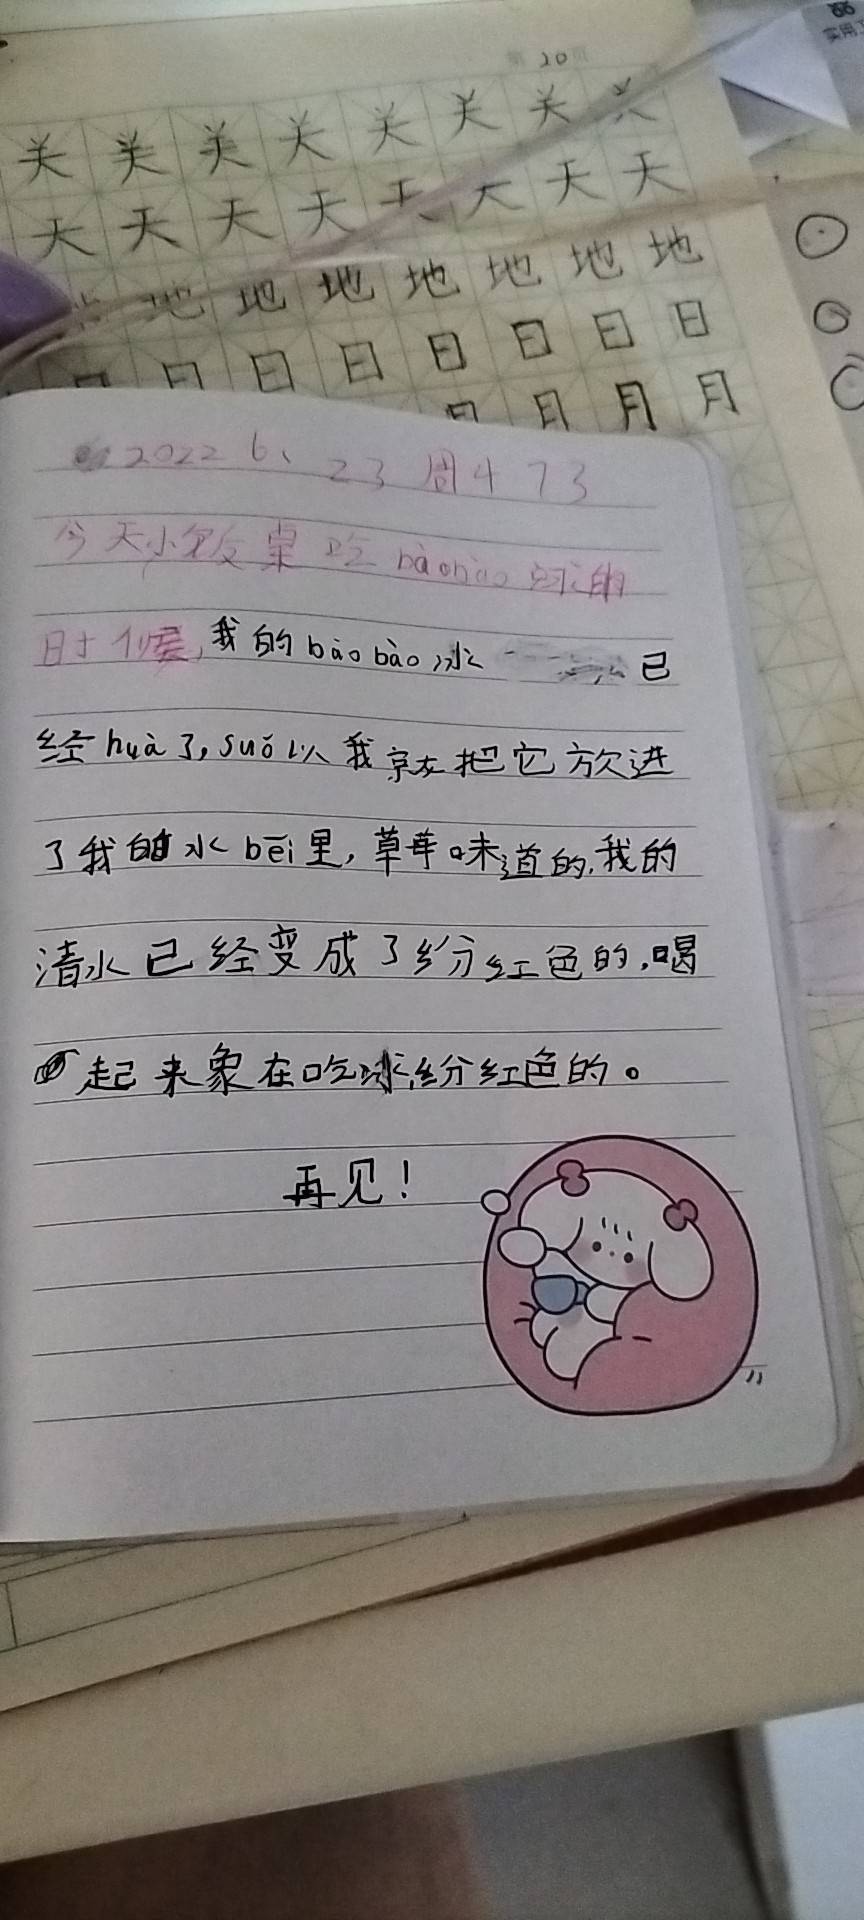 第20页
关 关 关 关 关 关 关 关
天 天 天 天 天 天 天 天
地 地 地 地 地 地 地
日 日 日 日 日 日 日 日
月 月 月 月
2022 6、23 周4 73
今天小饭桌吃bàobào 球的
时候,我的bàobào冰 已
经huà了,suǒ以我就把它放进
了我的水bēi里,草莓味道的,我的
清水已经变成了纷红色的,喝
起来象在吃球,纷红色的。
再见!
实用